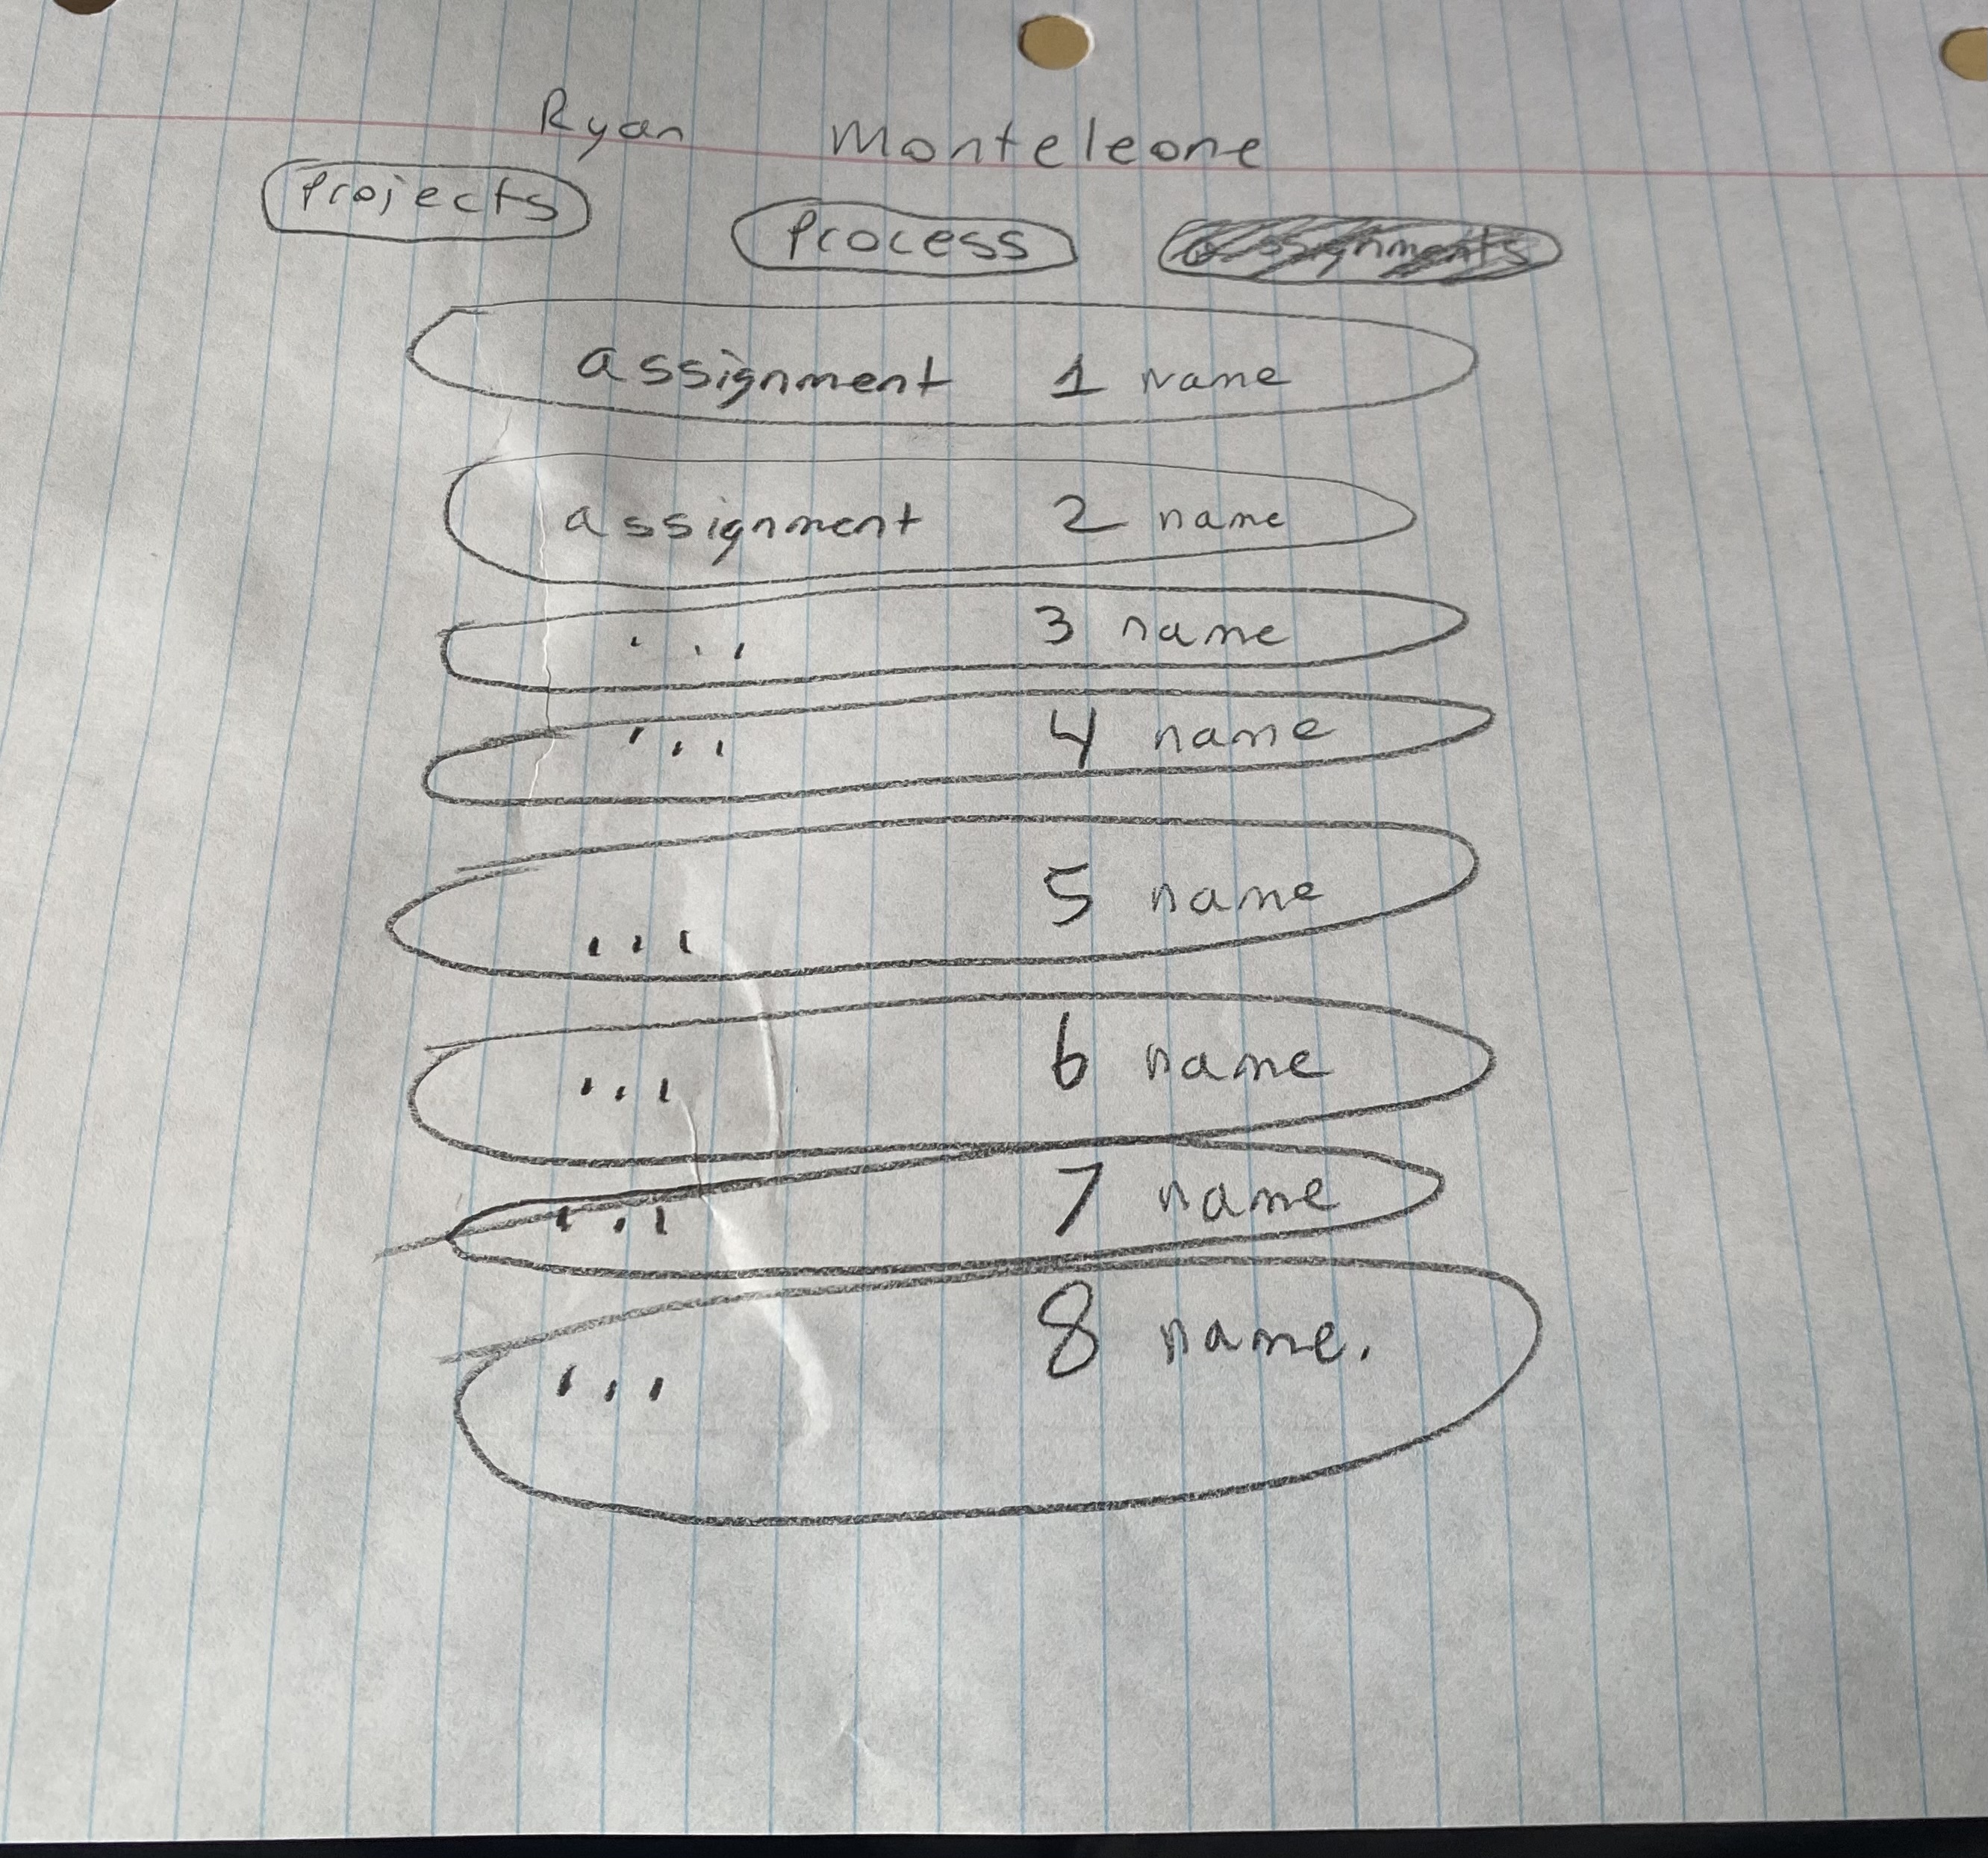 Ryan Monteleone
Projects Process assignments
assignment 1 name
assignment 2 name
... 3 name
... 4 name
... 5 name
... 6 name
... 7 name
... 8 name.